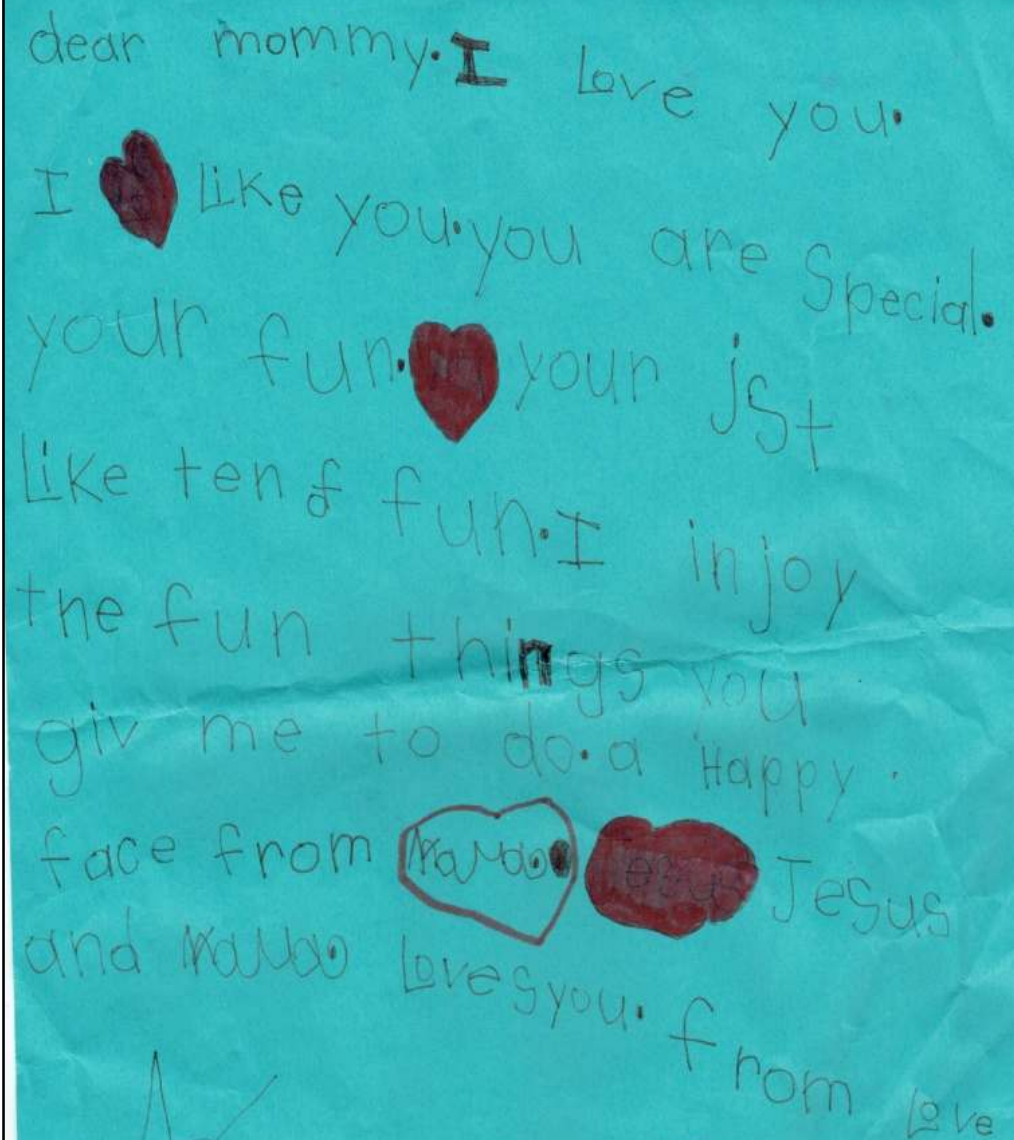 dear mommy. I Love you.
I Like you. you are Special.
your fun. your jst
Like ten of fun. I injoy
the fun things you
giv me to do. a Happy.
face from
Jesus
and Loves you. from Love